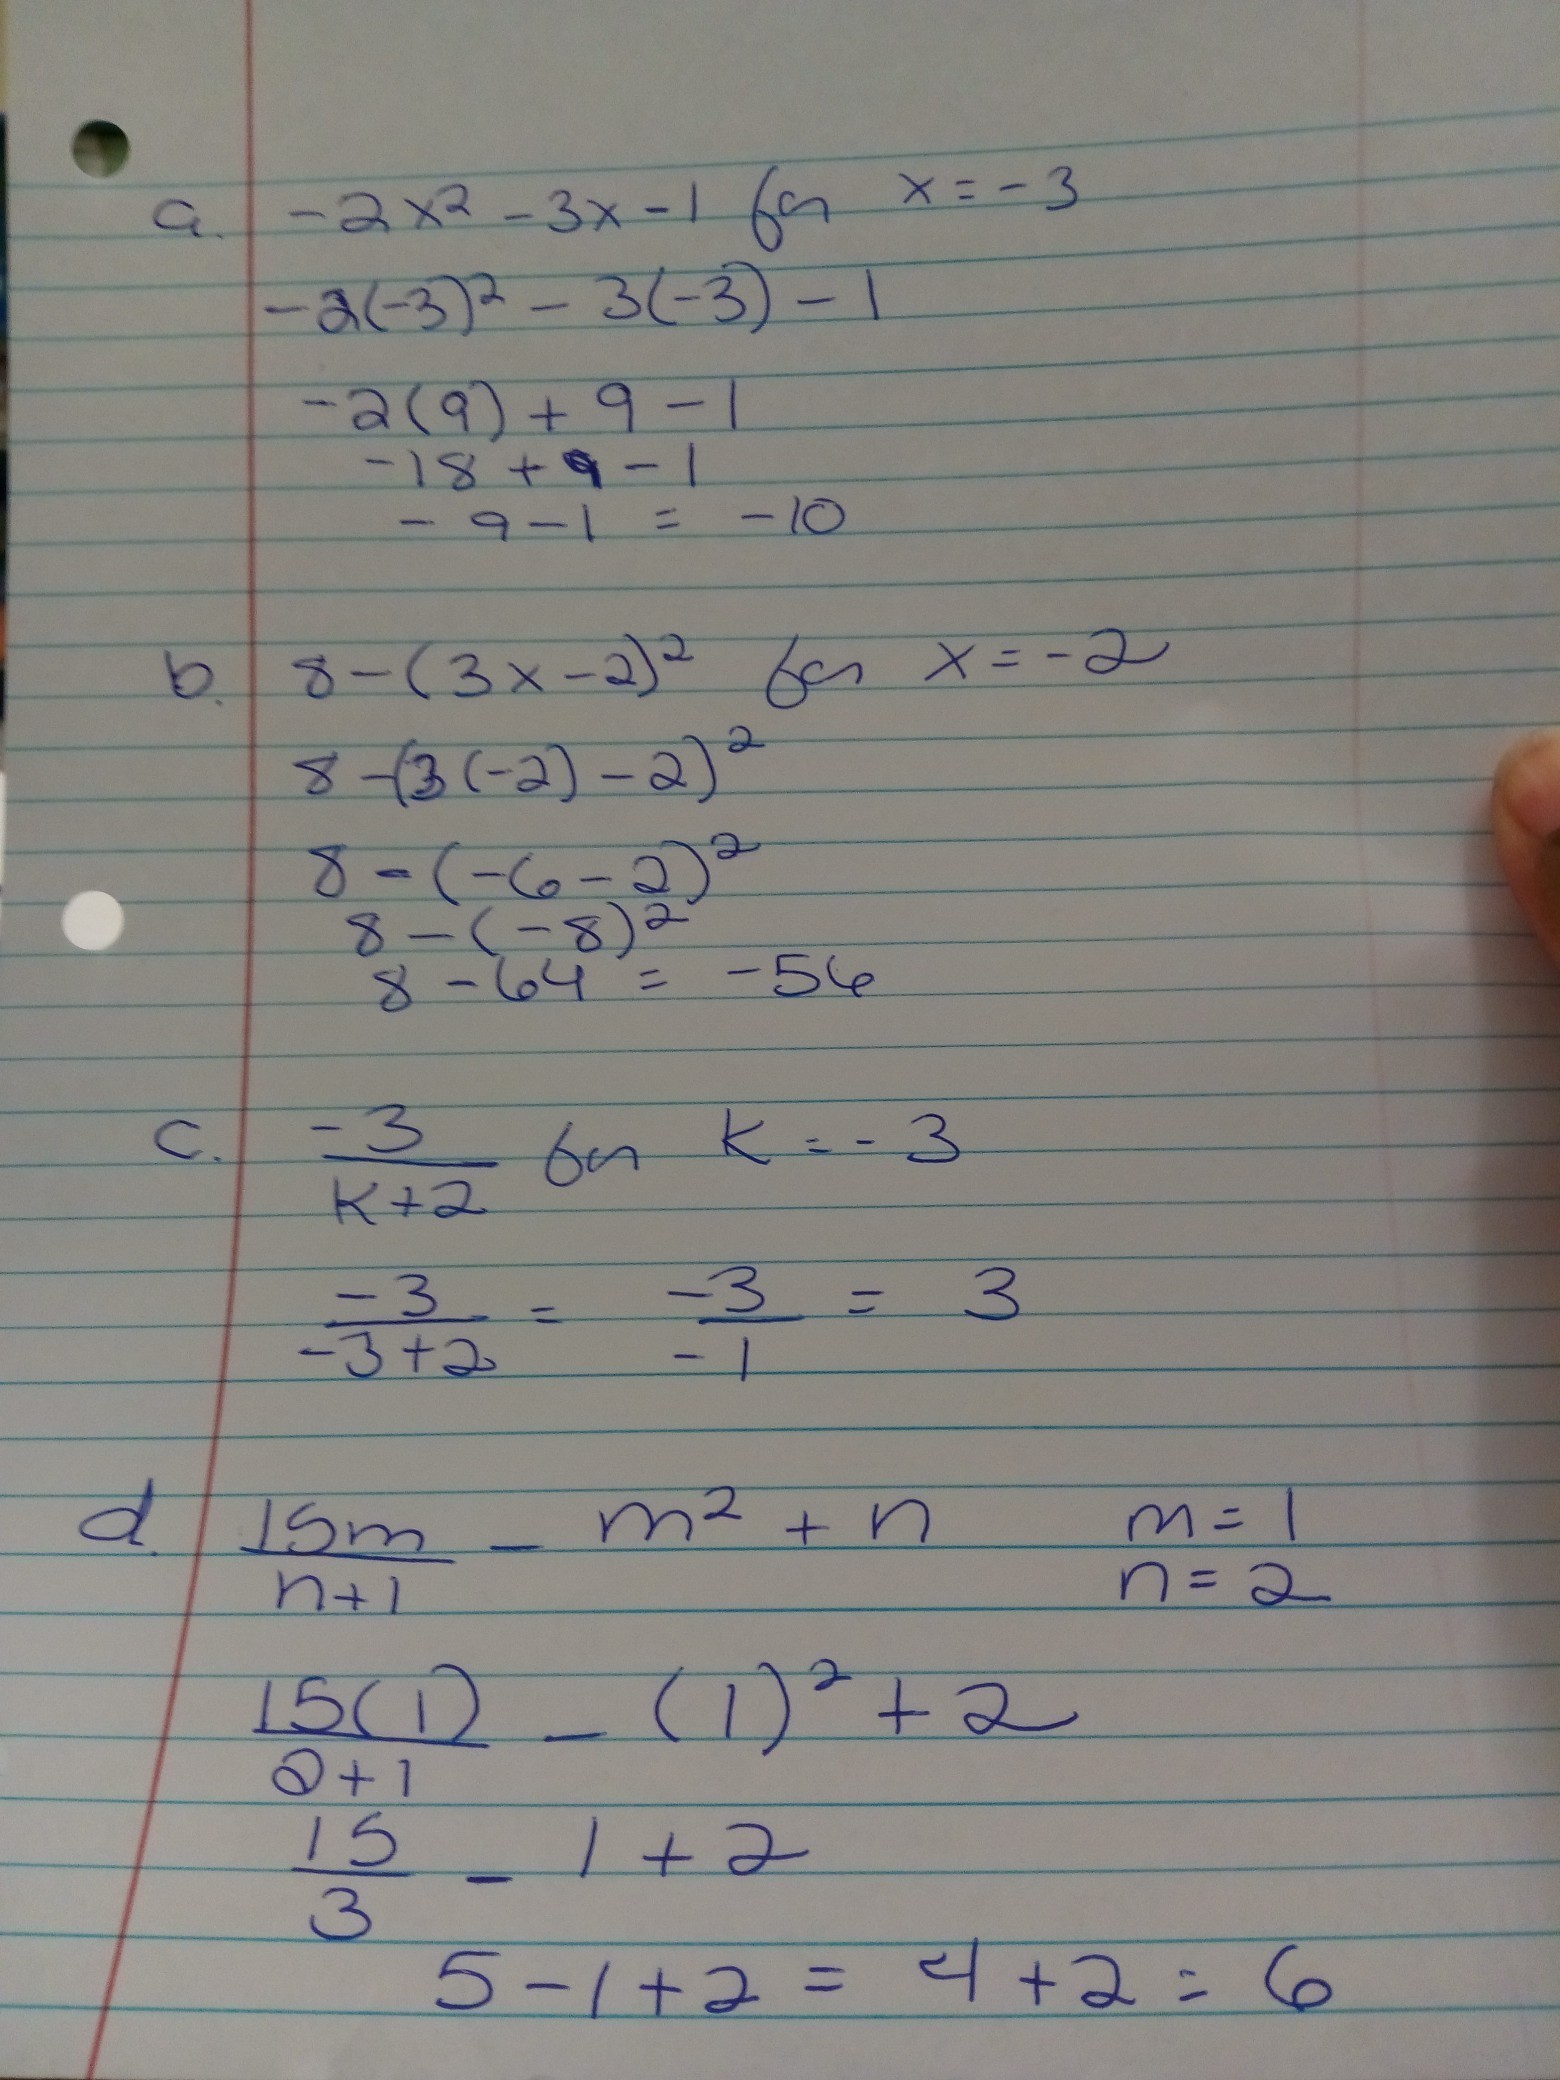 a. -2x² - 3x - 1 for x = -3
-2(-3)² - 3(-3) - 1
-2(9) + 9 - 1
-18 + 9 - 1
-9 - 1 = -10
b. 8 - (3x - 2)² for x = -2
8 - (3(-2) - 2)²
8 - (-6 - 2)²
8 - (-8)²
8 - 64 = -56
c. -3/(k+2) for k = -3
-3/(-3+2) = -3/-1 = 3
d. 15m/(n+1) - m² + n m = 1
n = 2
15(1)/(2+1) - (1)² + 2
15/3 - 1 + 2
5 - 1 + 2 = 4 + 2 = 6